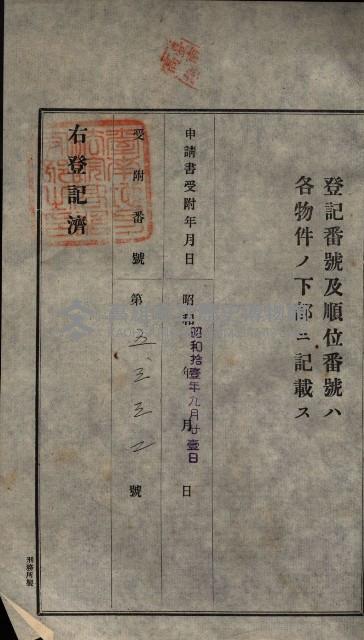 登記番號及順位番號ハ
各物件ノ下部ニ記載ス
申請書受附年月日
昭和 年 月 日
昭和拾壹年九月廿壹日
受附番號
第五、三三二號
右登記濟
刑務所製